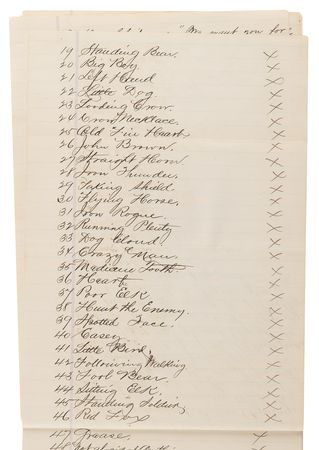 "We want now for
19 Standing Bear. X
20 Big Boy. X
21 Left Hand X
22 Little Dog. X
23 Feeding Crow. X
24 Crow Necklace. X
25 Old Fire Heart X
26 John Brown. X
27 Straight Horn X
28 Iron Thunder. X
29 Taking Shield X
30 Flying Horse. X
31 Iron Rogue. X
32 Running Plenty X
33 Dog Cloud. X
34 Crazy Man. X
35 Medicine Tooth. X
36 Heart. X
37 Poor Elk X
38 Hunt the Enemy. X
39 Spotted Face. X
40 Casey X
41 Little Bird. X
42 Following Walking X
43 Fool Bear X
44 Sitting Elk. X
45 Standing Soldier, X
46 Red Fox X
47 Grease. X
48